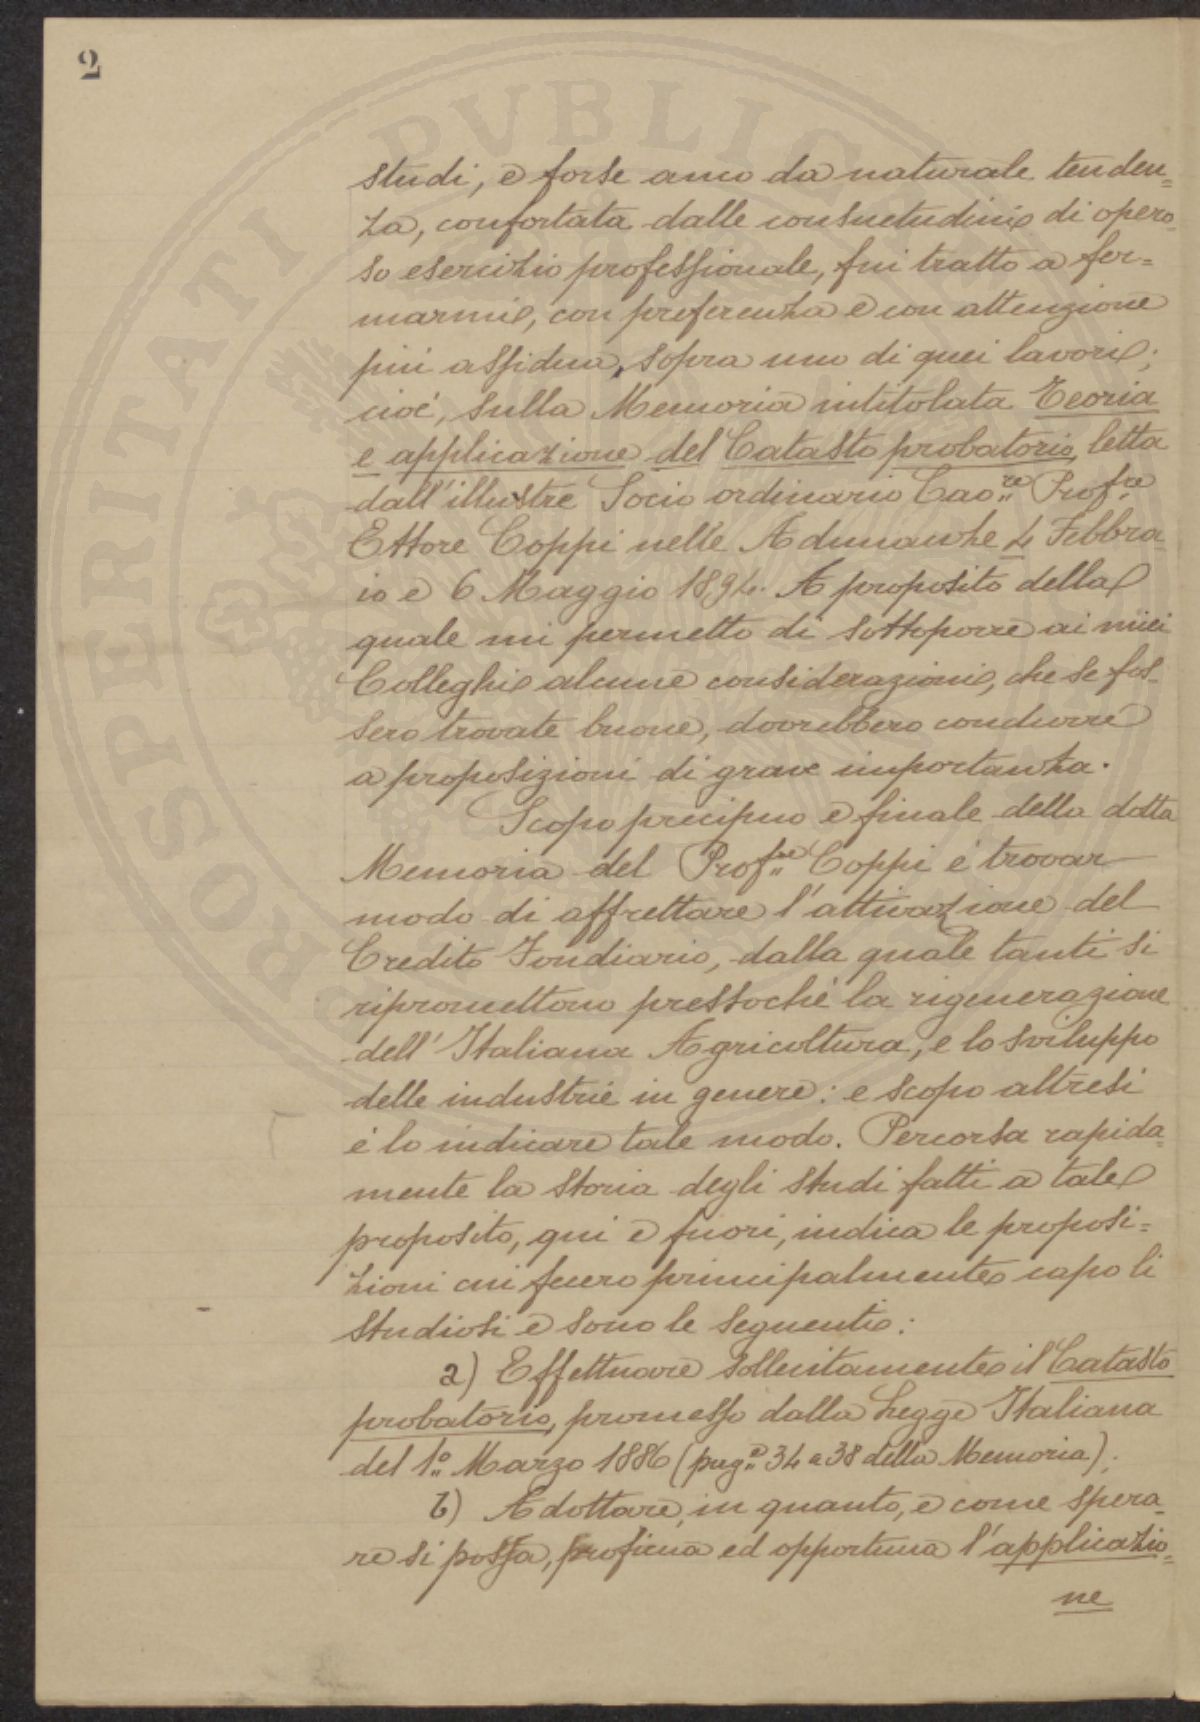 2
PROSPERITATI PVBLICAE
studi, e forse anco da naturale tenden=
za, confortata dalle consuetudini di opero=
so esercizio professionale, fui tratto a fer=
marmi, con preferenza e con attenzione
più assidua, sopra uno di quei lavori;
cioè, sulla Memoria intitolata Teoria
e applicazione del Catasto probatorio, letta
dall'illustre Socio ordinario Cav.re Prof.re
Ettore Coppi nelle Adunanze 4 Febbra=
io e 6 Maggio 1894. A proposito della
quale mi permetto di sottoporre ai miei
Colleghi alcune considerazioni, che se fos=
sero trovate buone, dovrebbero condurre
a proposizioni di grave importanza.
Scopo precipuo e finale della dotta
Memoria del Prof.re Coppi è trovar
modo di affrettare l'attivazione del
Credito Fondiario, dalla quale tanti si
ripromettono pressochè la rigenerazione
dell'Italiana Agricoltura, e lo sviluppo
delle industrie in genere: e scopo altresì
è lo indicare tale modo. Percorsa rapida=
mente la storia degli studi fatti a tale
proposito, qui e fuori, indica le proposi=
zioni cui fecero principalmente capo li
studiosi e sono le seguenti:
a) Effettuare sollecitamente il Catasto
probatorio, promesso dalla Legge Italiana
del 1.° Marzo 1886 (pag.e 34 a 38 della Memoria);
b) Adottare, in quanto, e come spera=
re si possa, proficua ed opportuna l'applicazio=
ne